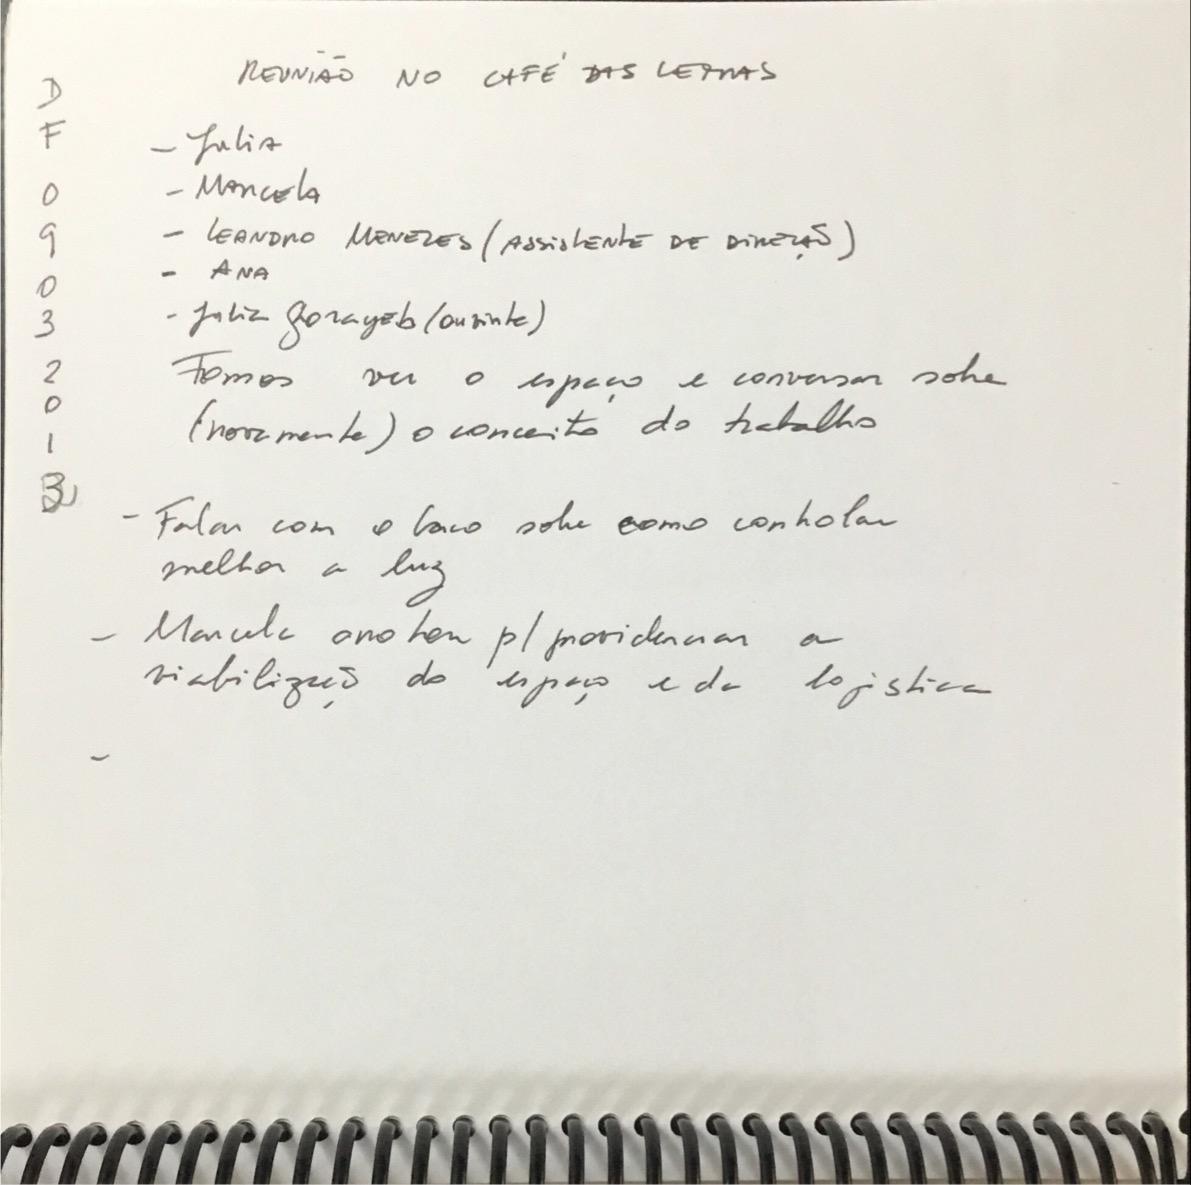 REUNIÃO NO CAFÉ DAS LETRAS
D
F
0
9
0
3
2
0
1
3
- Julia
- Marcela
- LEANDRO MENEZES (ASSISTENTE DE DIREÇÃO)
- ANA
- Julia Gorayeb (ouvinte)
Fomos ver o espaço e conversar sobre
(novamente) o conceito do trabalho
- Falar com o Caco sobre como controlar
melhor a luz
- Marcela anotou p/ providenciar a
viabilização do espaço e da logistica
-